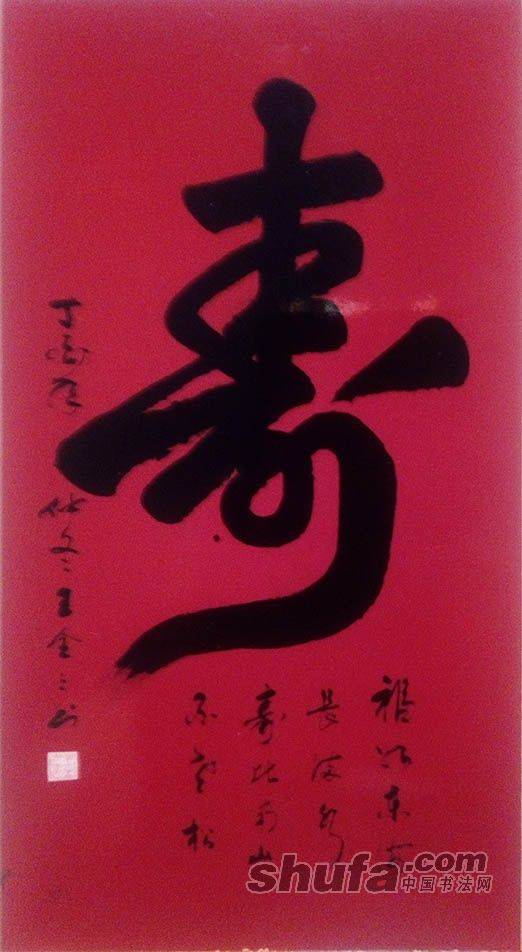 寿
福如东海
長流水
寿比南山
不老松
仲冬王金之书
shufa.com
中国书法网